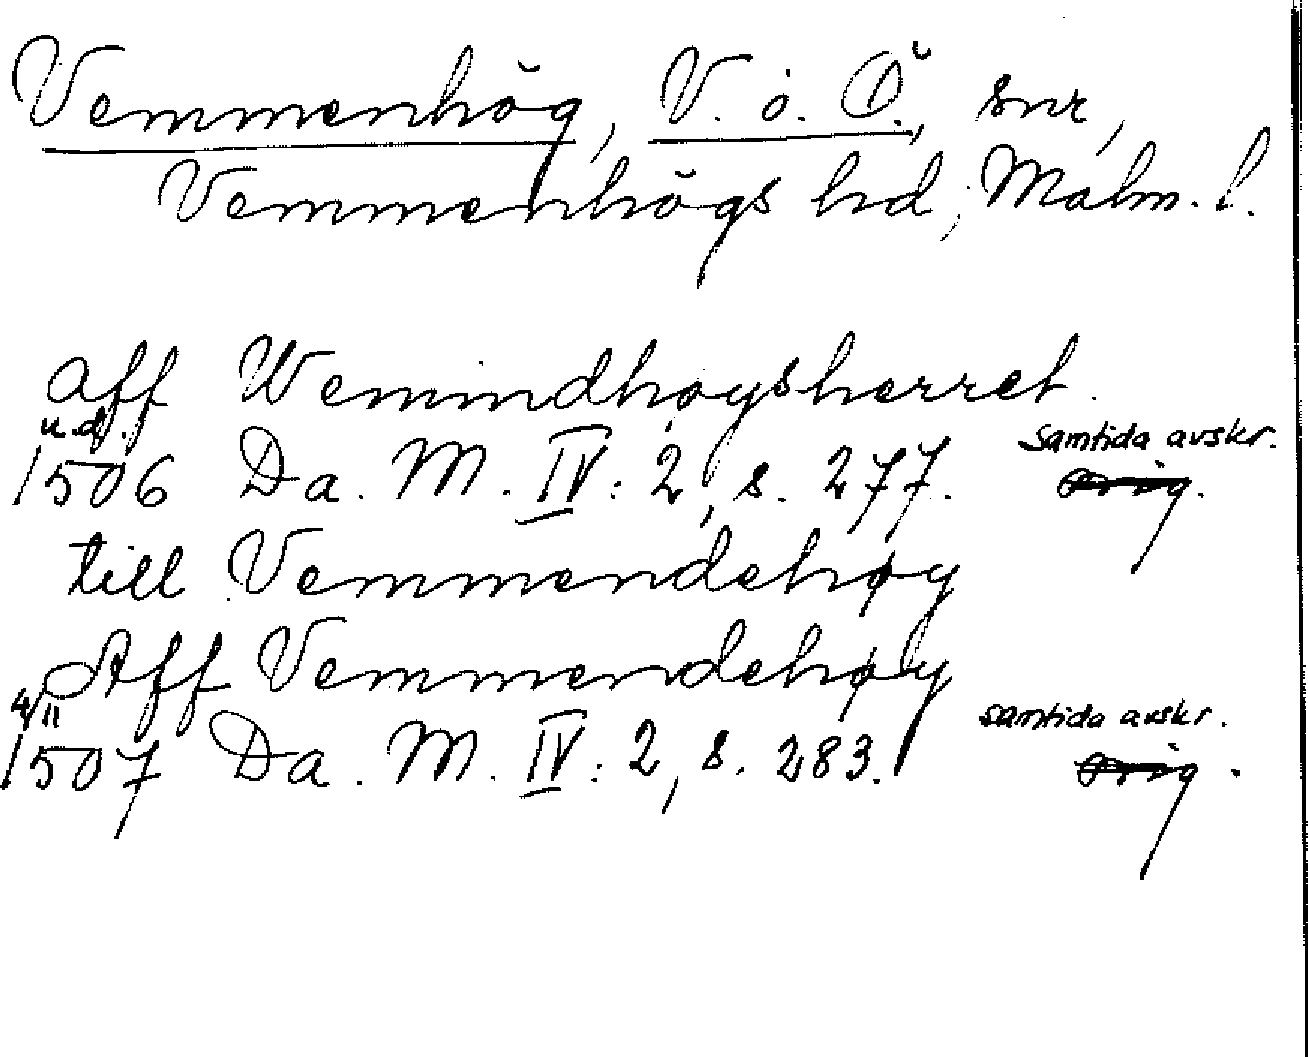 Vemmenhög, V. o. Ö., snr,
Vemmenhögs hd, Malm. l.
aff Wemindhøgsherret
u.d. samtida avskr.
1506 Da. M. IV: 2, s. 277. orig.
till Vemmendehøy
Aff Vemmendehøy
4/11 samtida avskr.
1507 Da. M. IV: 2, s. 283. orig.